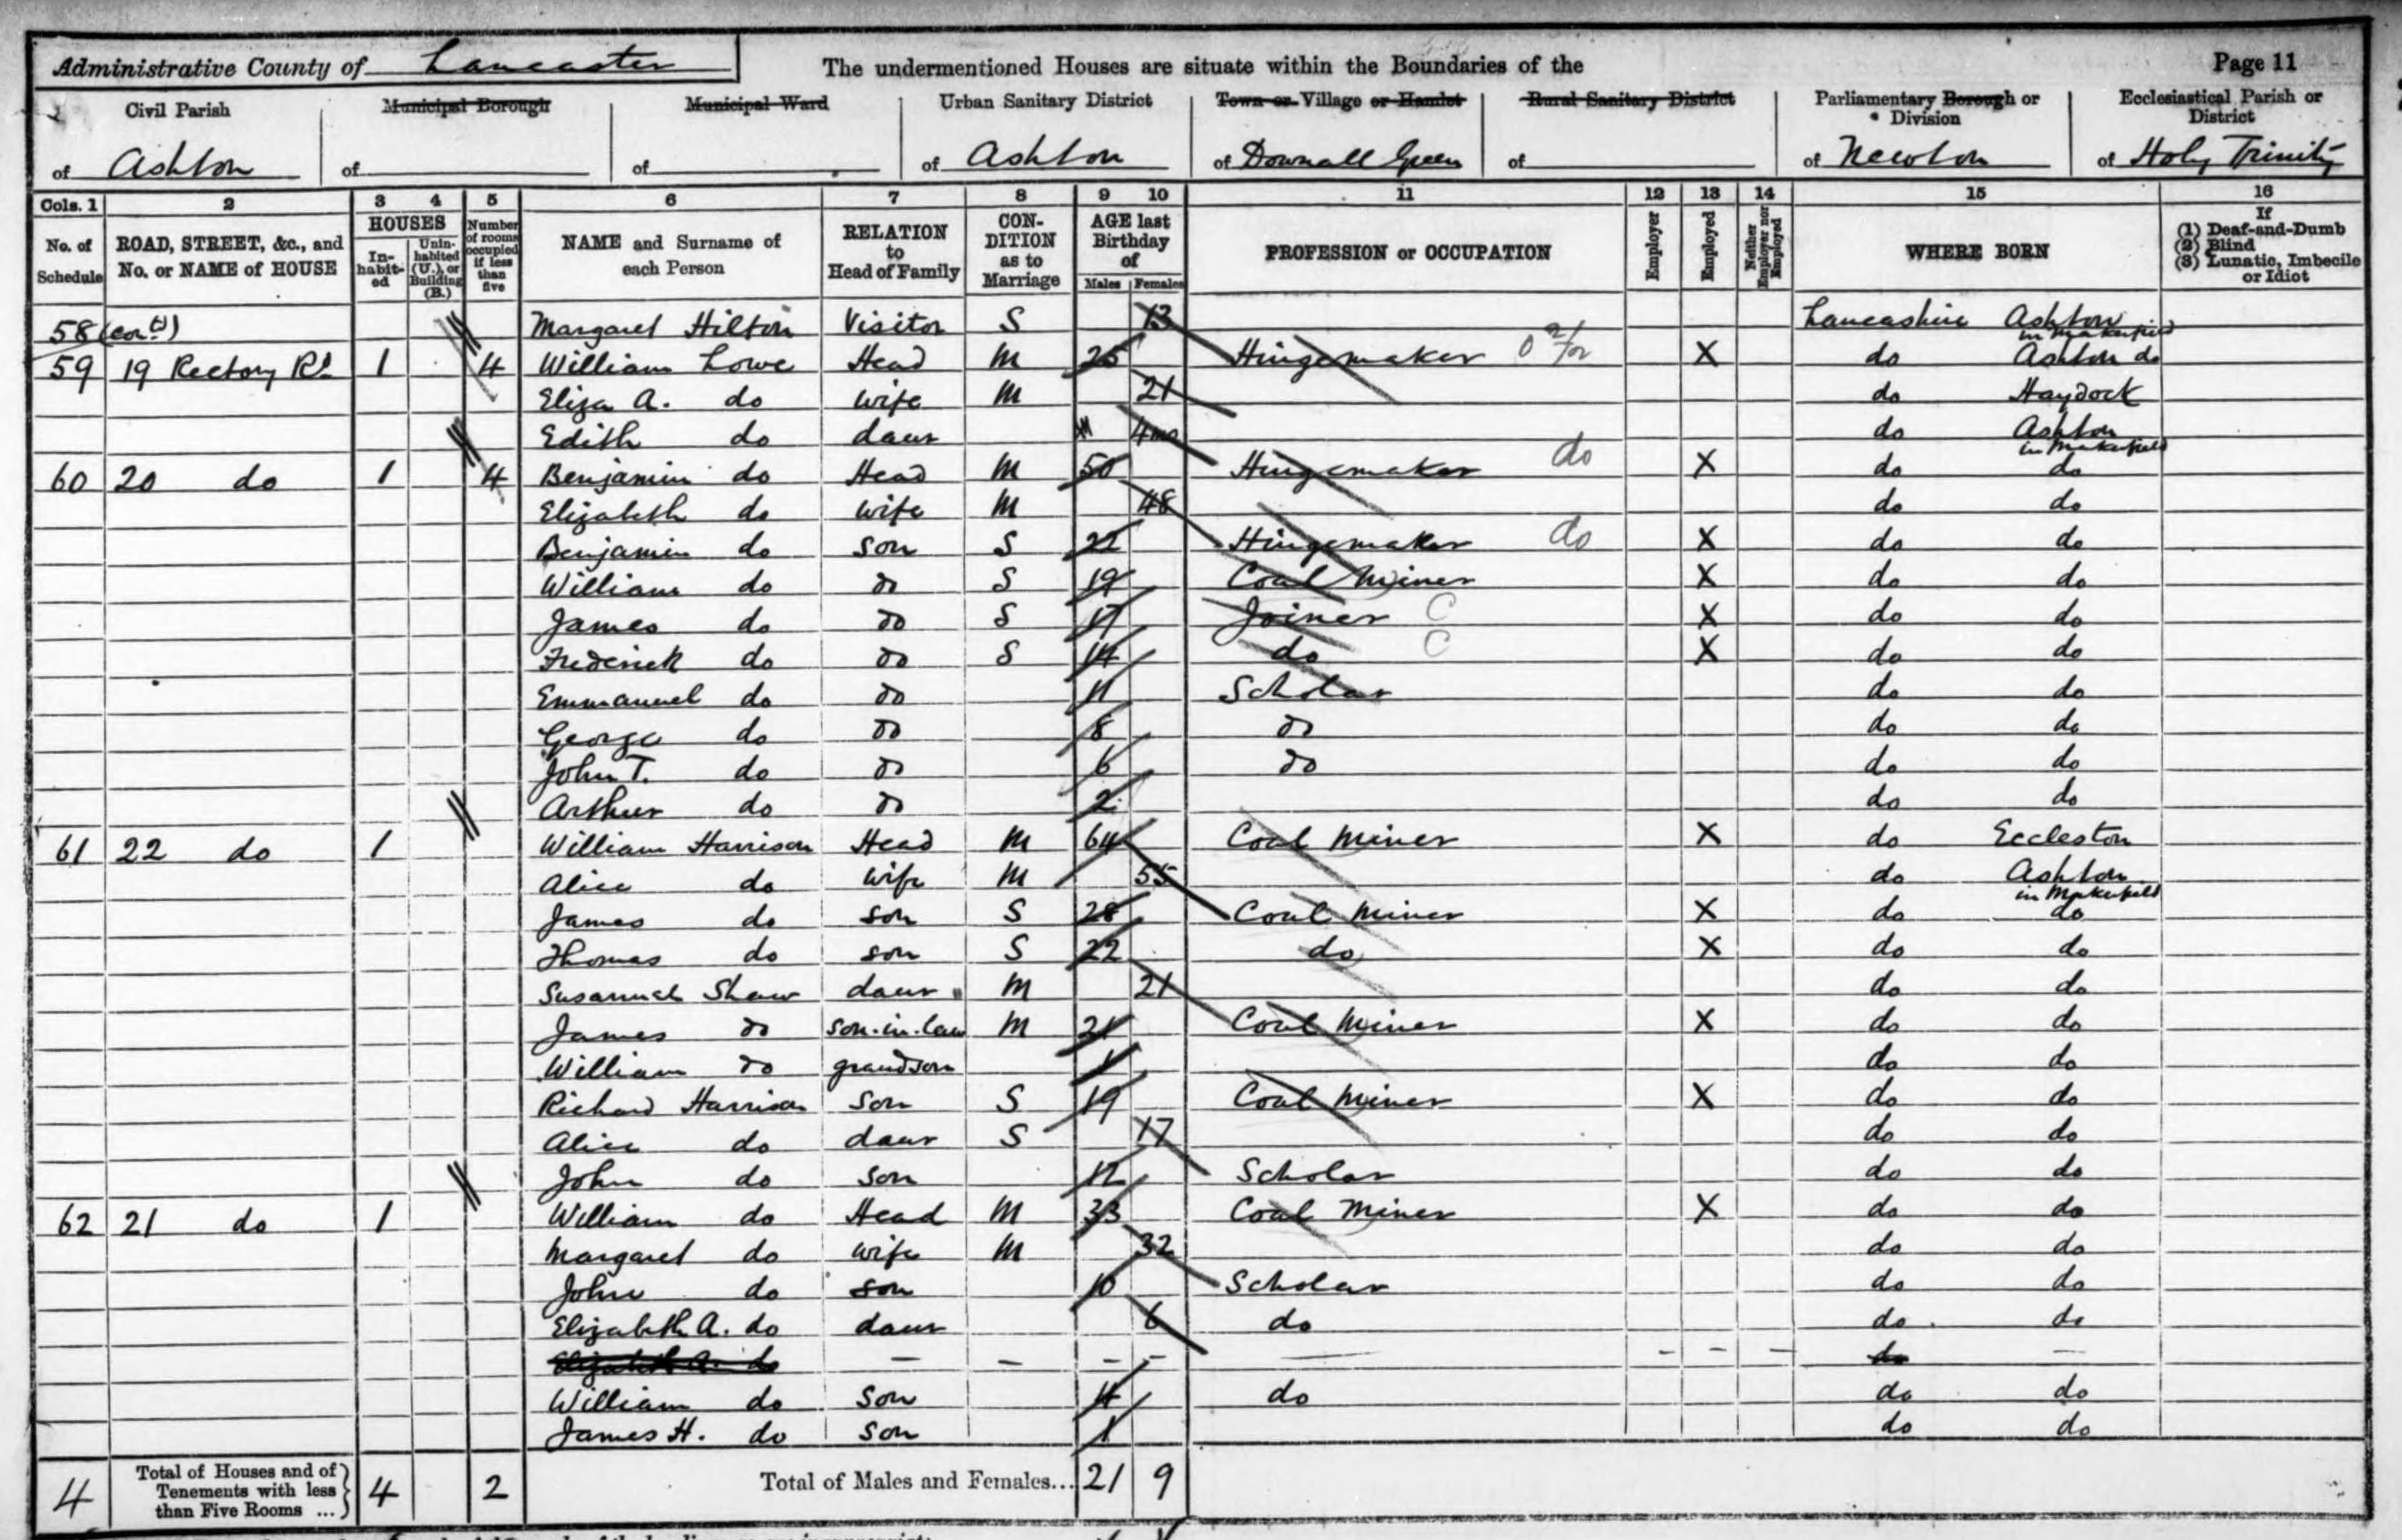 Administrative County of Lancaster The undermentioned Houses are situate within the Boundaries of the Page 11
Civil Parish Municipal Borough Municipal Ward Urban Sanitary District Town or Village or Hamlet Rural Sanitary District Parliamentary Borough or Division Ecclesiastical Parish or District
of Ashton of of of Ashton of Downall Green of of Newton of Holy Trinity
Cols. 1 2 3 4 5 6 7 8 9 10 11 12 13 14 15 16
No. of Schedule ROAD, STREET, &c., and No. or NAME of HOUSE HOUSES Inhabited Uninhabited (U.), or Building (B.) Number of rooms occupied if less than five NAME and Surname of each Person RELATION to Head of Family CONDITION as to Marriage AGE last Birthday of Males Females PROFESSION or OCCUPATION Employer Employed Neither Employer nor Employed WHERE BORN If (1) Deaf-and-Dumb (2) Blind (3) Lunatic, Imbecile or Idiot
58 (contd) Margaret Hilton Visitor S 13 Lancashire Ashton in Makerfield
59 19 Rectory Rd 1 4 William Lowe Head M 25 Hingemaker X do Ashton do
Eliza A. do wife M 21 do Haydock
Edith do daur 4mo do Ashton in Makerfield
60 20 do 1 4 Benjamin do Head M 50 Hingemaker do X do do
Elizabeth do wife M 48 do do
Benjamin do son S 22 Hingemaker do X do do
William do do S 19 Coal Miner X do do
James do do S 17 Joiner C X do do
Frederick do do S 14 do C X do do
Emmanuel do do 11 Scholar do do
George do do 8 do do do
John T. do do 6 do do do
Arthur do do 2 do do
61 22 do 1 William Harrison Head M 64 Coal Miner X do Eccleston
Alice do wife M 55 do Ashton in Makerfield
James do son S 28 Coal Miner X do do
Thomas do son S 22 do X do do
Susannah Shaw daur M 21 do do
James do son-in-law M 21 Coal Miner X do do
William do grandson 1 do do
Richard Harrison son S 19 Coal Miner X do do
Alice do daur S 17 do do
John do son 12 Scholar do do
62 21 do 1 William do Head M 33 Coal Miner X do do
Margaret do wife M 32 do do
John do son 10 Scholar do do
Elizabeth A. do daur 6 do do do
Elizabeth A. do — — - - — - - — do —
William do son 4 do do do
James H. do son 1 do do
4 Total of Houses and of Tenements with less than Five Rooms ... 4 2 Total of Males and Females... 21 9